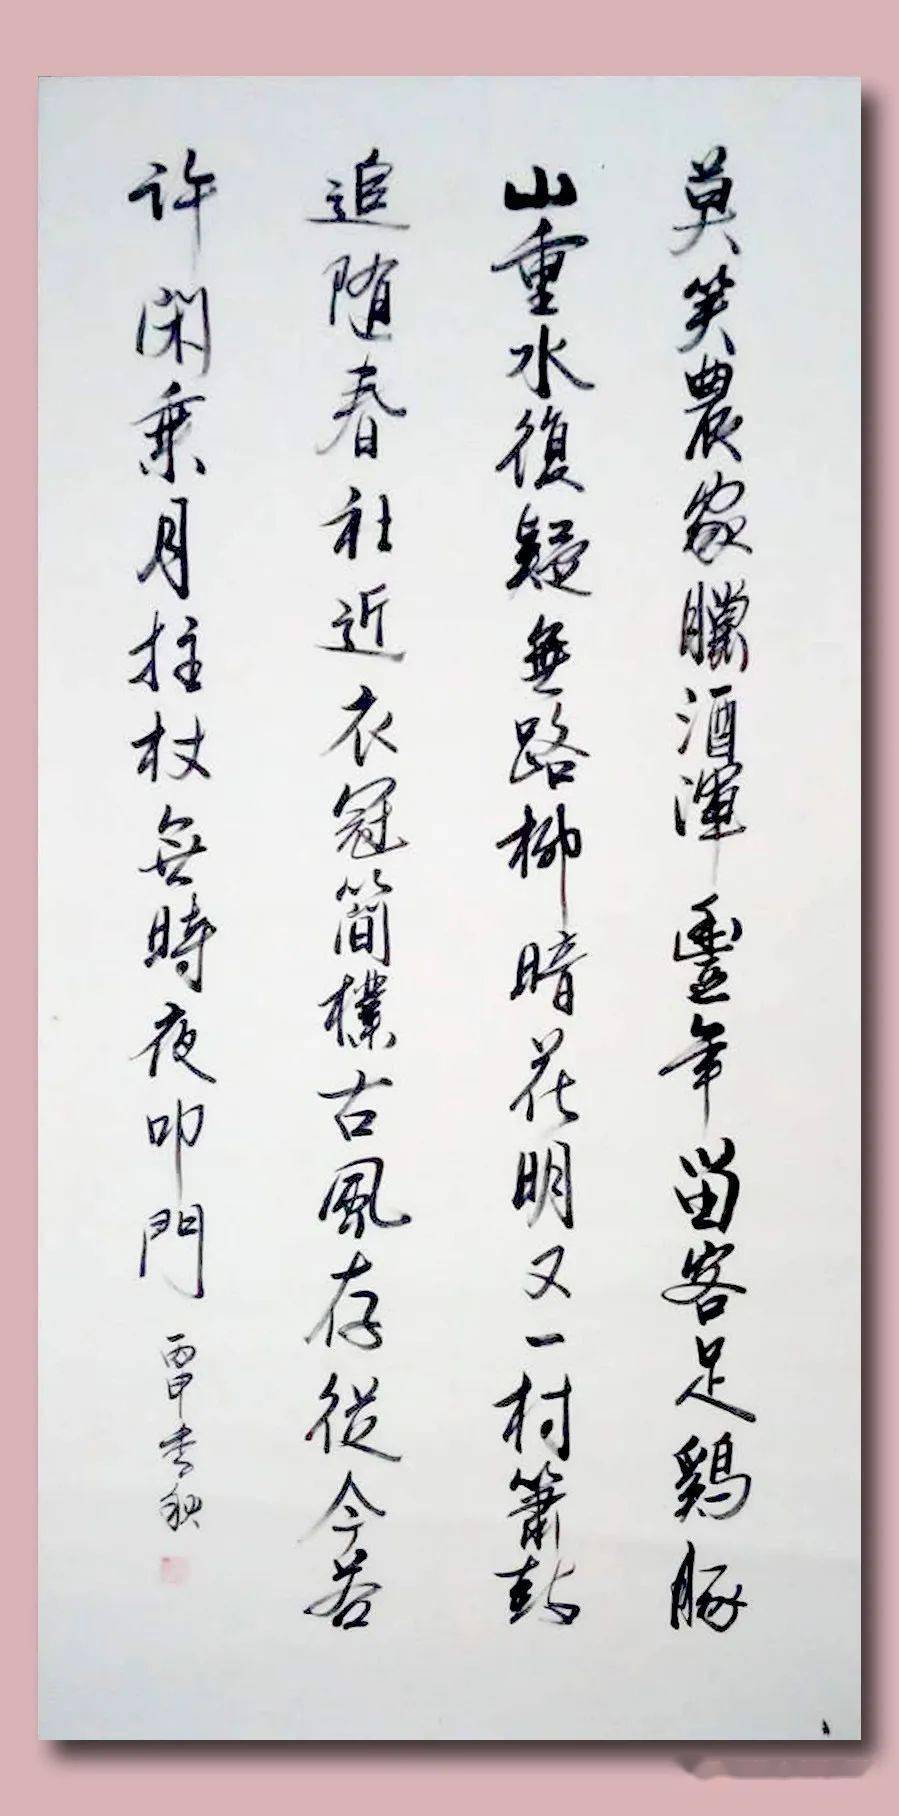 莫笑農家臘酒渾豐年留客足鷄豚
山重水復疑無路柳暗花明又一村簫鼓
追随春社近衣冠簡樸古風存從今若
許閑乗月拄杖無時夜叩門